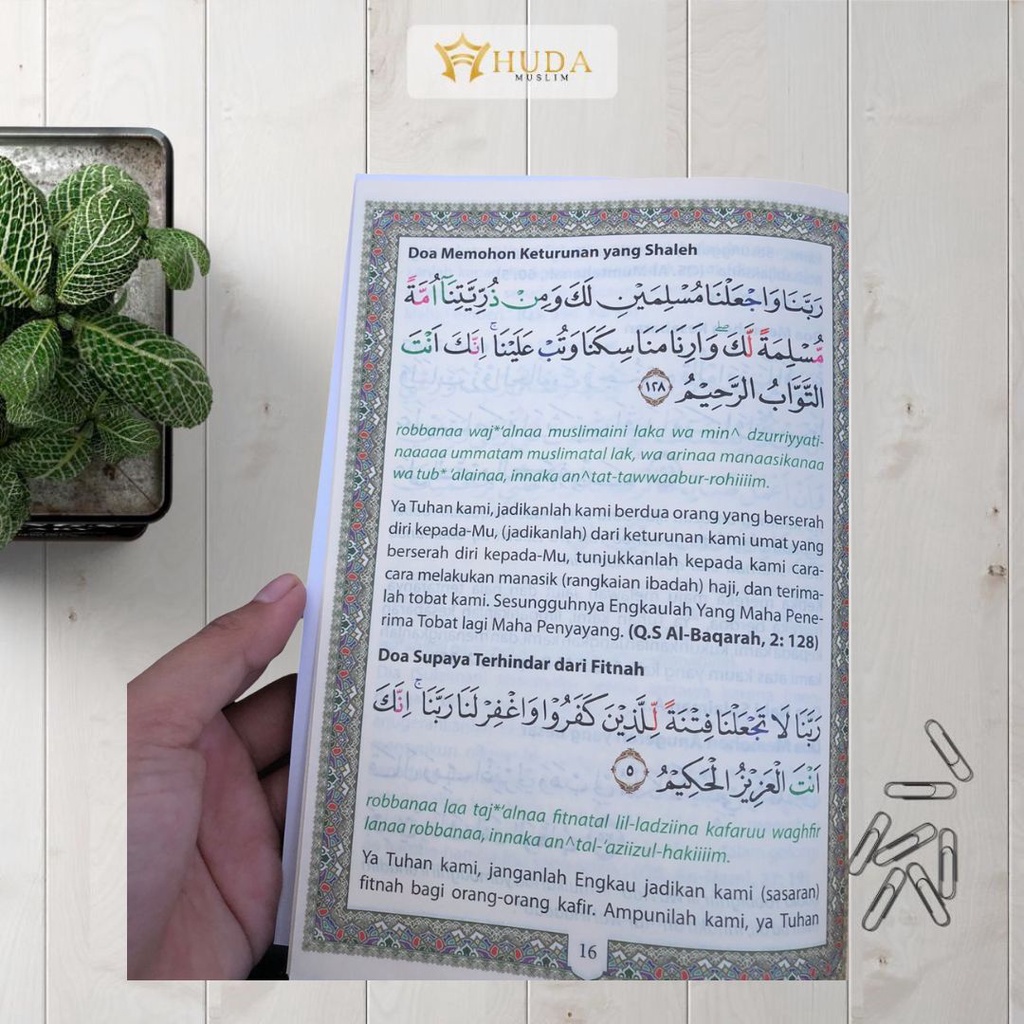 HUDA
MUSLIM
Doa Memohon Keturunan yang Shaleh
رَبَّنَا وَاجْعَلْنَا مُسْلِمَيْنِ لَكَ وَمِنْ ذُرِّيَّتِنَآ اُمَّةً
مُّسْلِمَةً لَّكَۖ وَاَرِنَا مَنَاسِكَنَا وَتُبْ عَلَيْنَاۚ اِنَّكَ اَنْتَ
التَّوَّابُ الرَّحِيْمُ ١٢٨
robbanaa waj*'alnaa muslimaini laka wa min^ dzurriyyati-
naaaaa ummatam muslimatal lak, wa arinaa manaasikanaa
wa tub* 'alainaa, innaka an^tat-tawwaabur-rohiiiim.
Ya Tuhan kami, jadikanlah kami berdua orang yang berserah
diri kepada-Mu, (jadikanlah) dari keturunan kami umat yang
berserah diri kepada-Mu, tunjukkanlah kepada kami cara-
cara melakukan manasik (rangkaian ibadah) haji, dan terima-
lah tobat kami. Sesungguhnya Engkaulah Yang Maha Pene-
rima Tobat lagi Maha Penyayang. (Q.S Al-Baqarah, 2: 128)
Doa Supaya Terhindar dari Fitnah
رَبَّنَا لَا تَجْعَلْنَا فِتْنَةً لِّلَّذِيْنَ كَفَرُوْا وَاغْفِرْ لَنَا رَبَّنَاۚ اِنَّكَ
اَنْتَ الْعَزِيْزُ الْحَكِيْمُ ٥
robbanaa laa taj*'alnaa fitnatal lil-ladziina kafaruu waghfir
lanaa robbanaa, innaka an^tal-'aziizul-hakiiiim.
Ya Tuhan kami, janganlah Engkau jadikan kami (sasaran)
fitnah bagi orang-orang kafir. Ampunilah kami, ya Tuhan
16